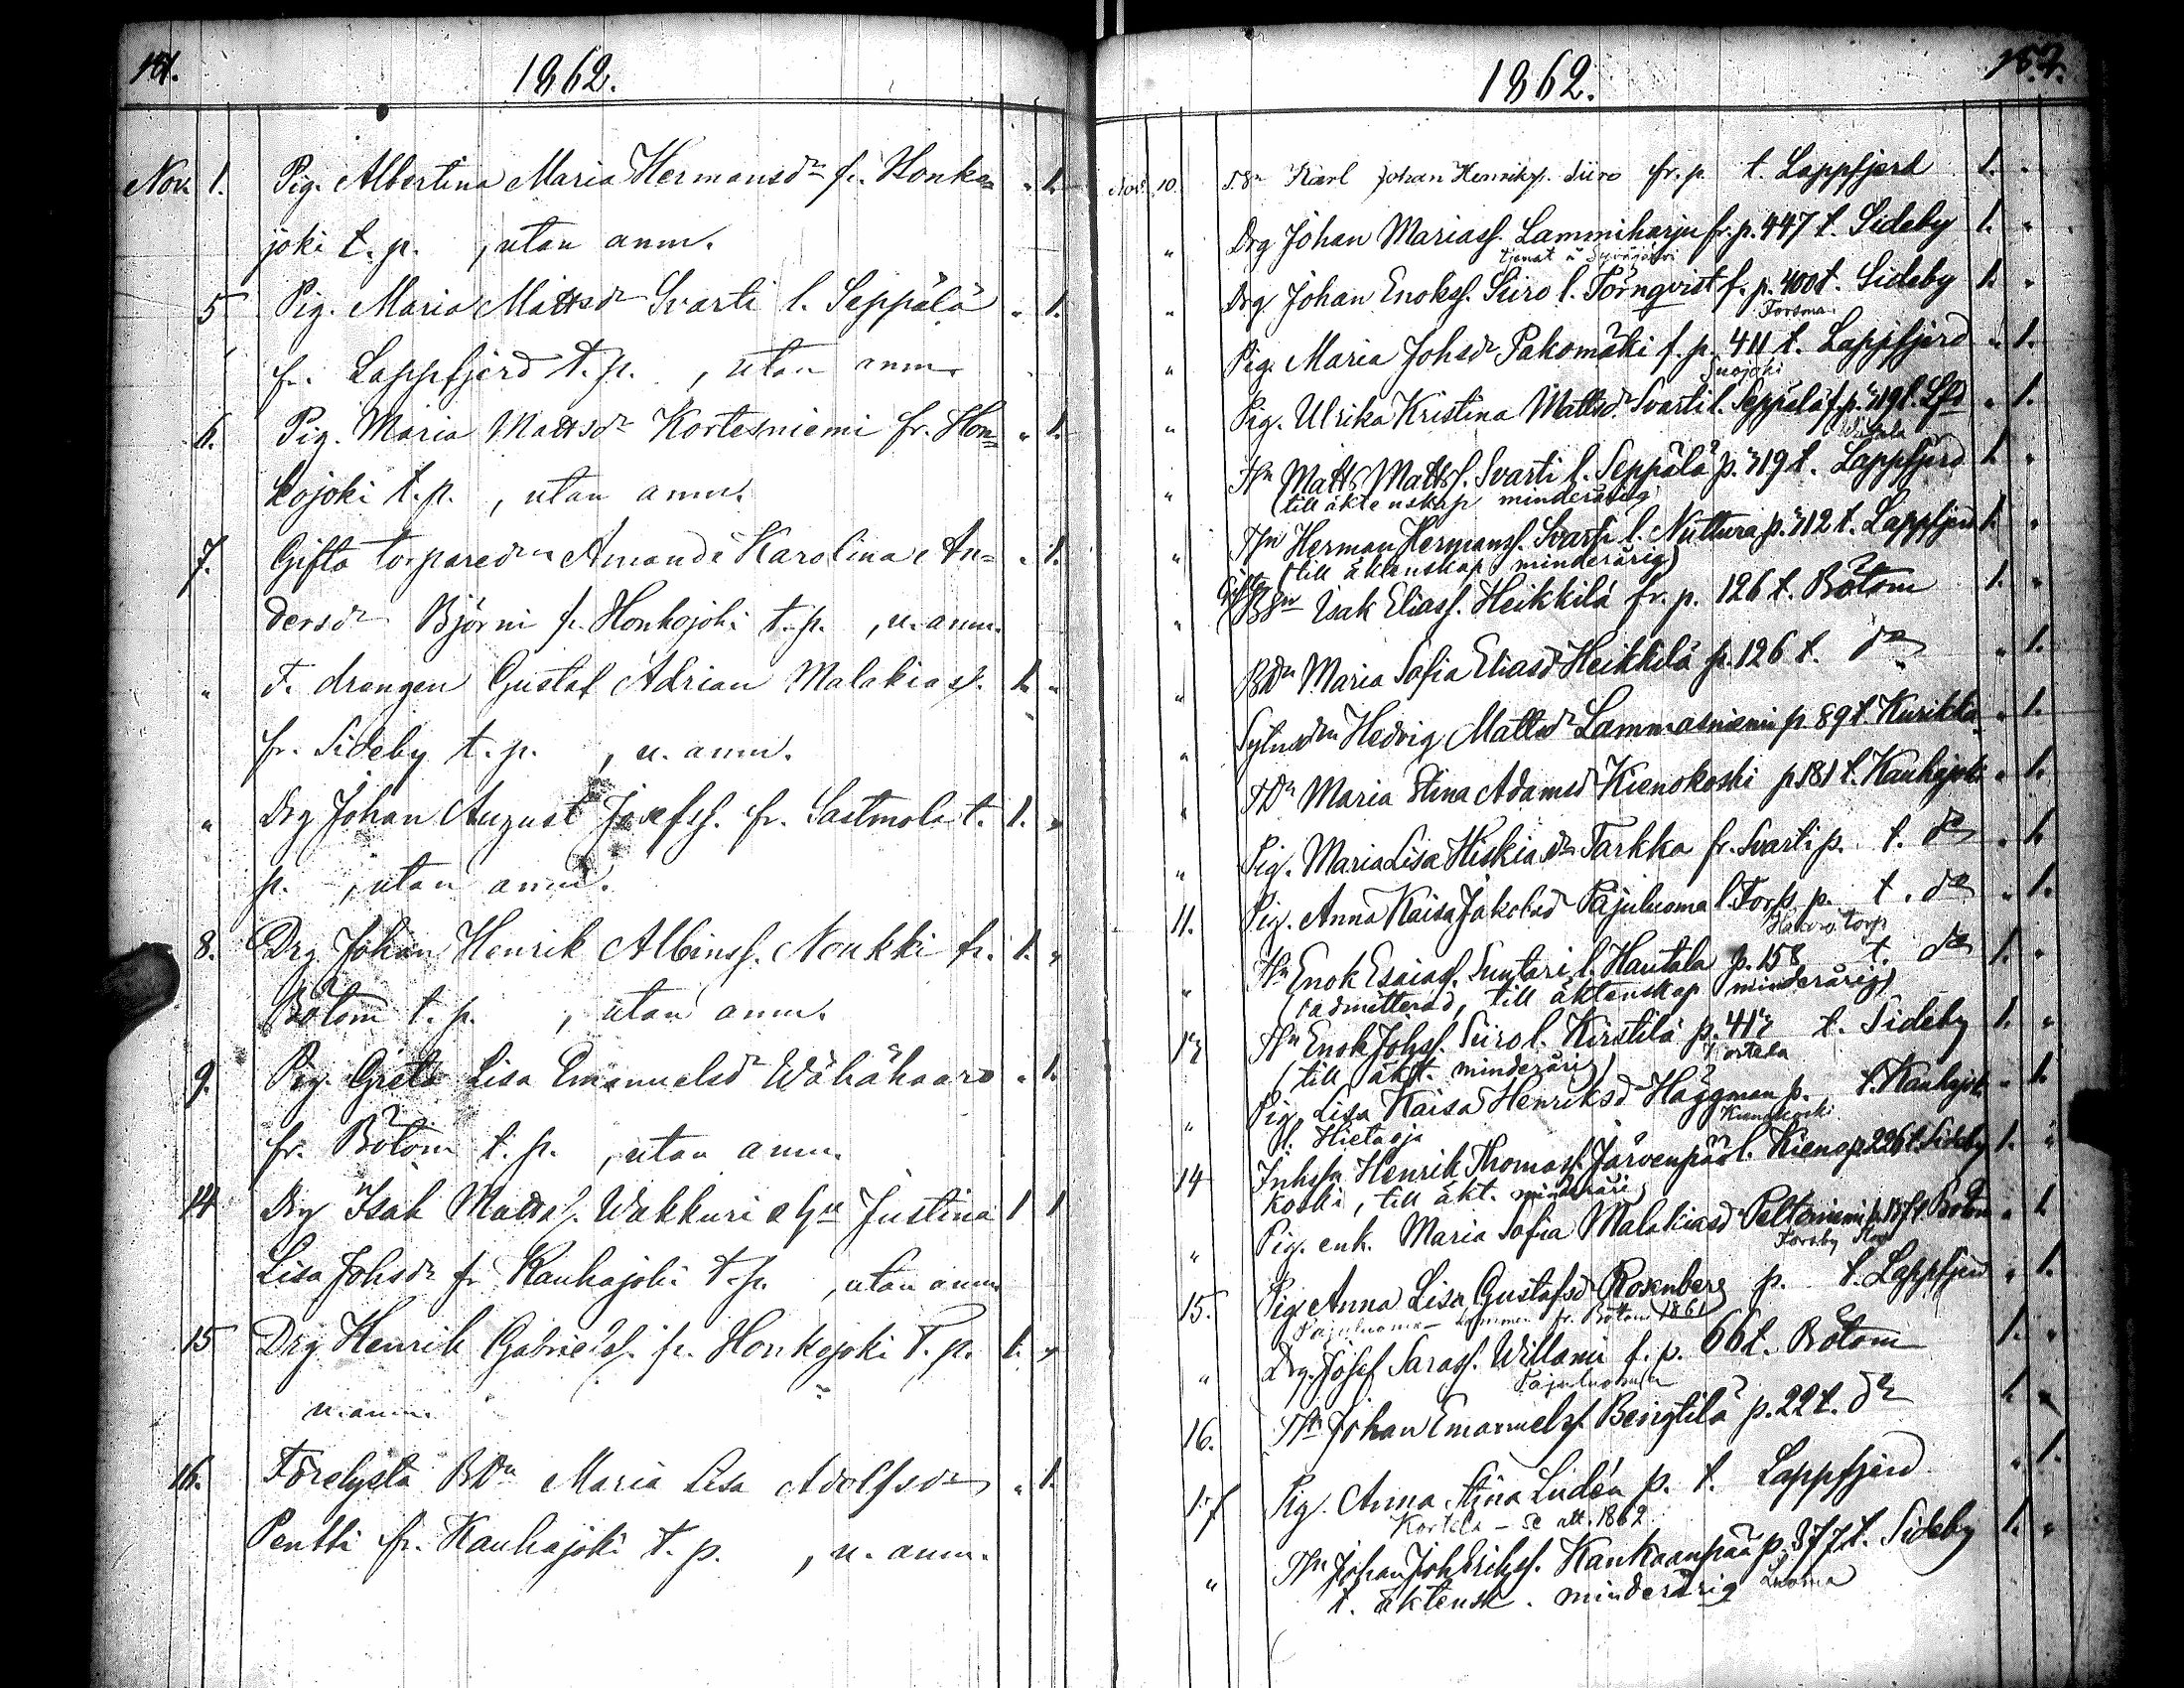 1862.
Nov. 1. Pig. Albertina Maria Hermansdr fr. Honka= " 1.
joki t. p. , utan anm.
5 Pig. Maria Mattsdr Svarti l. Seppälä " 1.
fr. Lappfjerd t. p. , utan anm.
6. Pig. Maria Mattsdr Kortesniemi fr. Hon= " 1.
kojoki t. p. , utan anm.
7. Gifta torparedn Amanda Karolina An= " 1.
dersdr Björni fr. Honkojoki t. p. , u. anm.
" F. drängen Gustaf Adrian Malakiass. 1. "
fr. Sideby t. p. , u. anm.
" Drg Johan August Josefss. fr. Sastmola t. 1. "
p. , utan anm.
8. Drg. Johan Henrik Albinss. Noukki fr. 1. "
Bötom t. p. , utan anm.
9. Pig. Greta Lisa Emanuelsdr Wähähaaro " 1.
fr. Bötom t. p. , utan anm.
14 Drg Isak Mattss. Wakkuri o hu Justina 1 1
Lisa Johsdr fr Kauhajoki t. p. , utan anm.
15 Drg Henrik Gabrielss. fr. Honkojoki t. p. 1. "
u. anm.
16. Förelysta BDn Maria Lisa Adolfsdr " 1.
Pentti fr. Kauhajoki t. p. , u. anm.
1862. 152.
Nov. 10. Karl Johan Henrikss. Siiro fr. p. t. Lappfjerd 1. "
" Drg Johan Mariass. Lammiharju fr. p. 447 t. Sideby 1. "
tjenat å
" Drg. Johan Enokss. Siiro l. Törnqvist f. p. 400 t. Sideby 1. "
" Pig. Maria Johsdr Pakomäki f. p. 411 t. Lappfjerd " 1.
" Pig. Ulrika Kristina Mattsdr Svarti l. Seppälä f. p. 319 t. Lfd " 1.
" Tsn Matts Mattss. Svarti l. Seppälä p. 319 t. Lappfjerd 1. "
(till äktenskap minderårig)
" Tsn Herman Hermanss. Svarti l. Nuttura p. 312 t. Lappfjerd 1. "
(till äktenskap minderårig)
" Gifta BSn Isak Eliass. Heikkilä fr. p. 126 t. Bötom 1. "
" BDn Maria Sofia Eliasdr Heikkilä p. 126 t. do " 1.
" Sytnsdn Hedvig Mattsdr Lammasniemi p 89 t. Kurikka " 1.
" TDn Maria Stina Adamsdr Kienokoski p 181 t. Kauhajoki " 1.
" Pig. Maria Lisa Hiskiasdr Tarkka fr. Svarti p. t. do " 1.
11. Pig. Anna Kaisa Jakobsdr Pajuluoma l. Torp p. t. do " 1.
" Tsn Enok Esaiass. Suutari l. Hautala p. 158 t. do 1. "
(oadmitterad, till äktenskap minderårig)
12 Tsn Enok Johss. Siiro l. Kirstilä p. 412 t. Sideby 1. "
(till äkt. minderårig) Kortela
" Pig. Lisa Kaisa Henriksdr Häggman p. t. Kauhajoki " 1.
l. Hietaoja
14 Inhsn Henrik Thomass. Järvenpää l. Kieno p 226 t. Sideby 1. "
koski, till äkt. minderårig
" Pig. enk. Maria Sofia Malakiasdr Peltoniemi p. 157 t. Bötom " 1.
15. Pig. Anna Lisa Gustafsdr Rosenberg p. t. Lappfjerd " 1.
Pajuluoma – fr. Bötom 1861
" Drg. Josef Sarass. Willami f. p. 66 t. Bötom 1. "
Pajuluoma
16. Tsn Johan Emanuelss. Bengtilä p. 22 t. do 1. "
17 Pig. Anna Stina Ludén p. t. Lappfjerd " 1.
Kortela – se att. 1862
" Tsn Johan Joh Erikss. Kankaanpää p. 377 t. Sideby 1. "
t. äktensk. minderårig Luoma